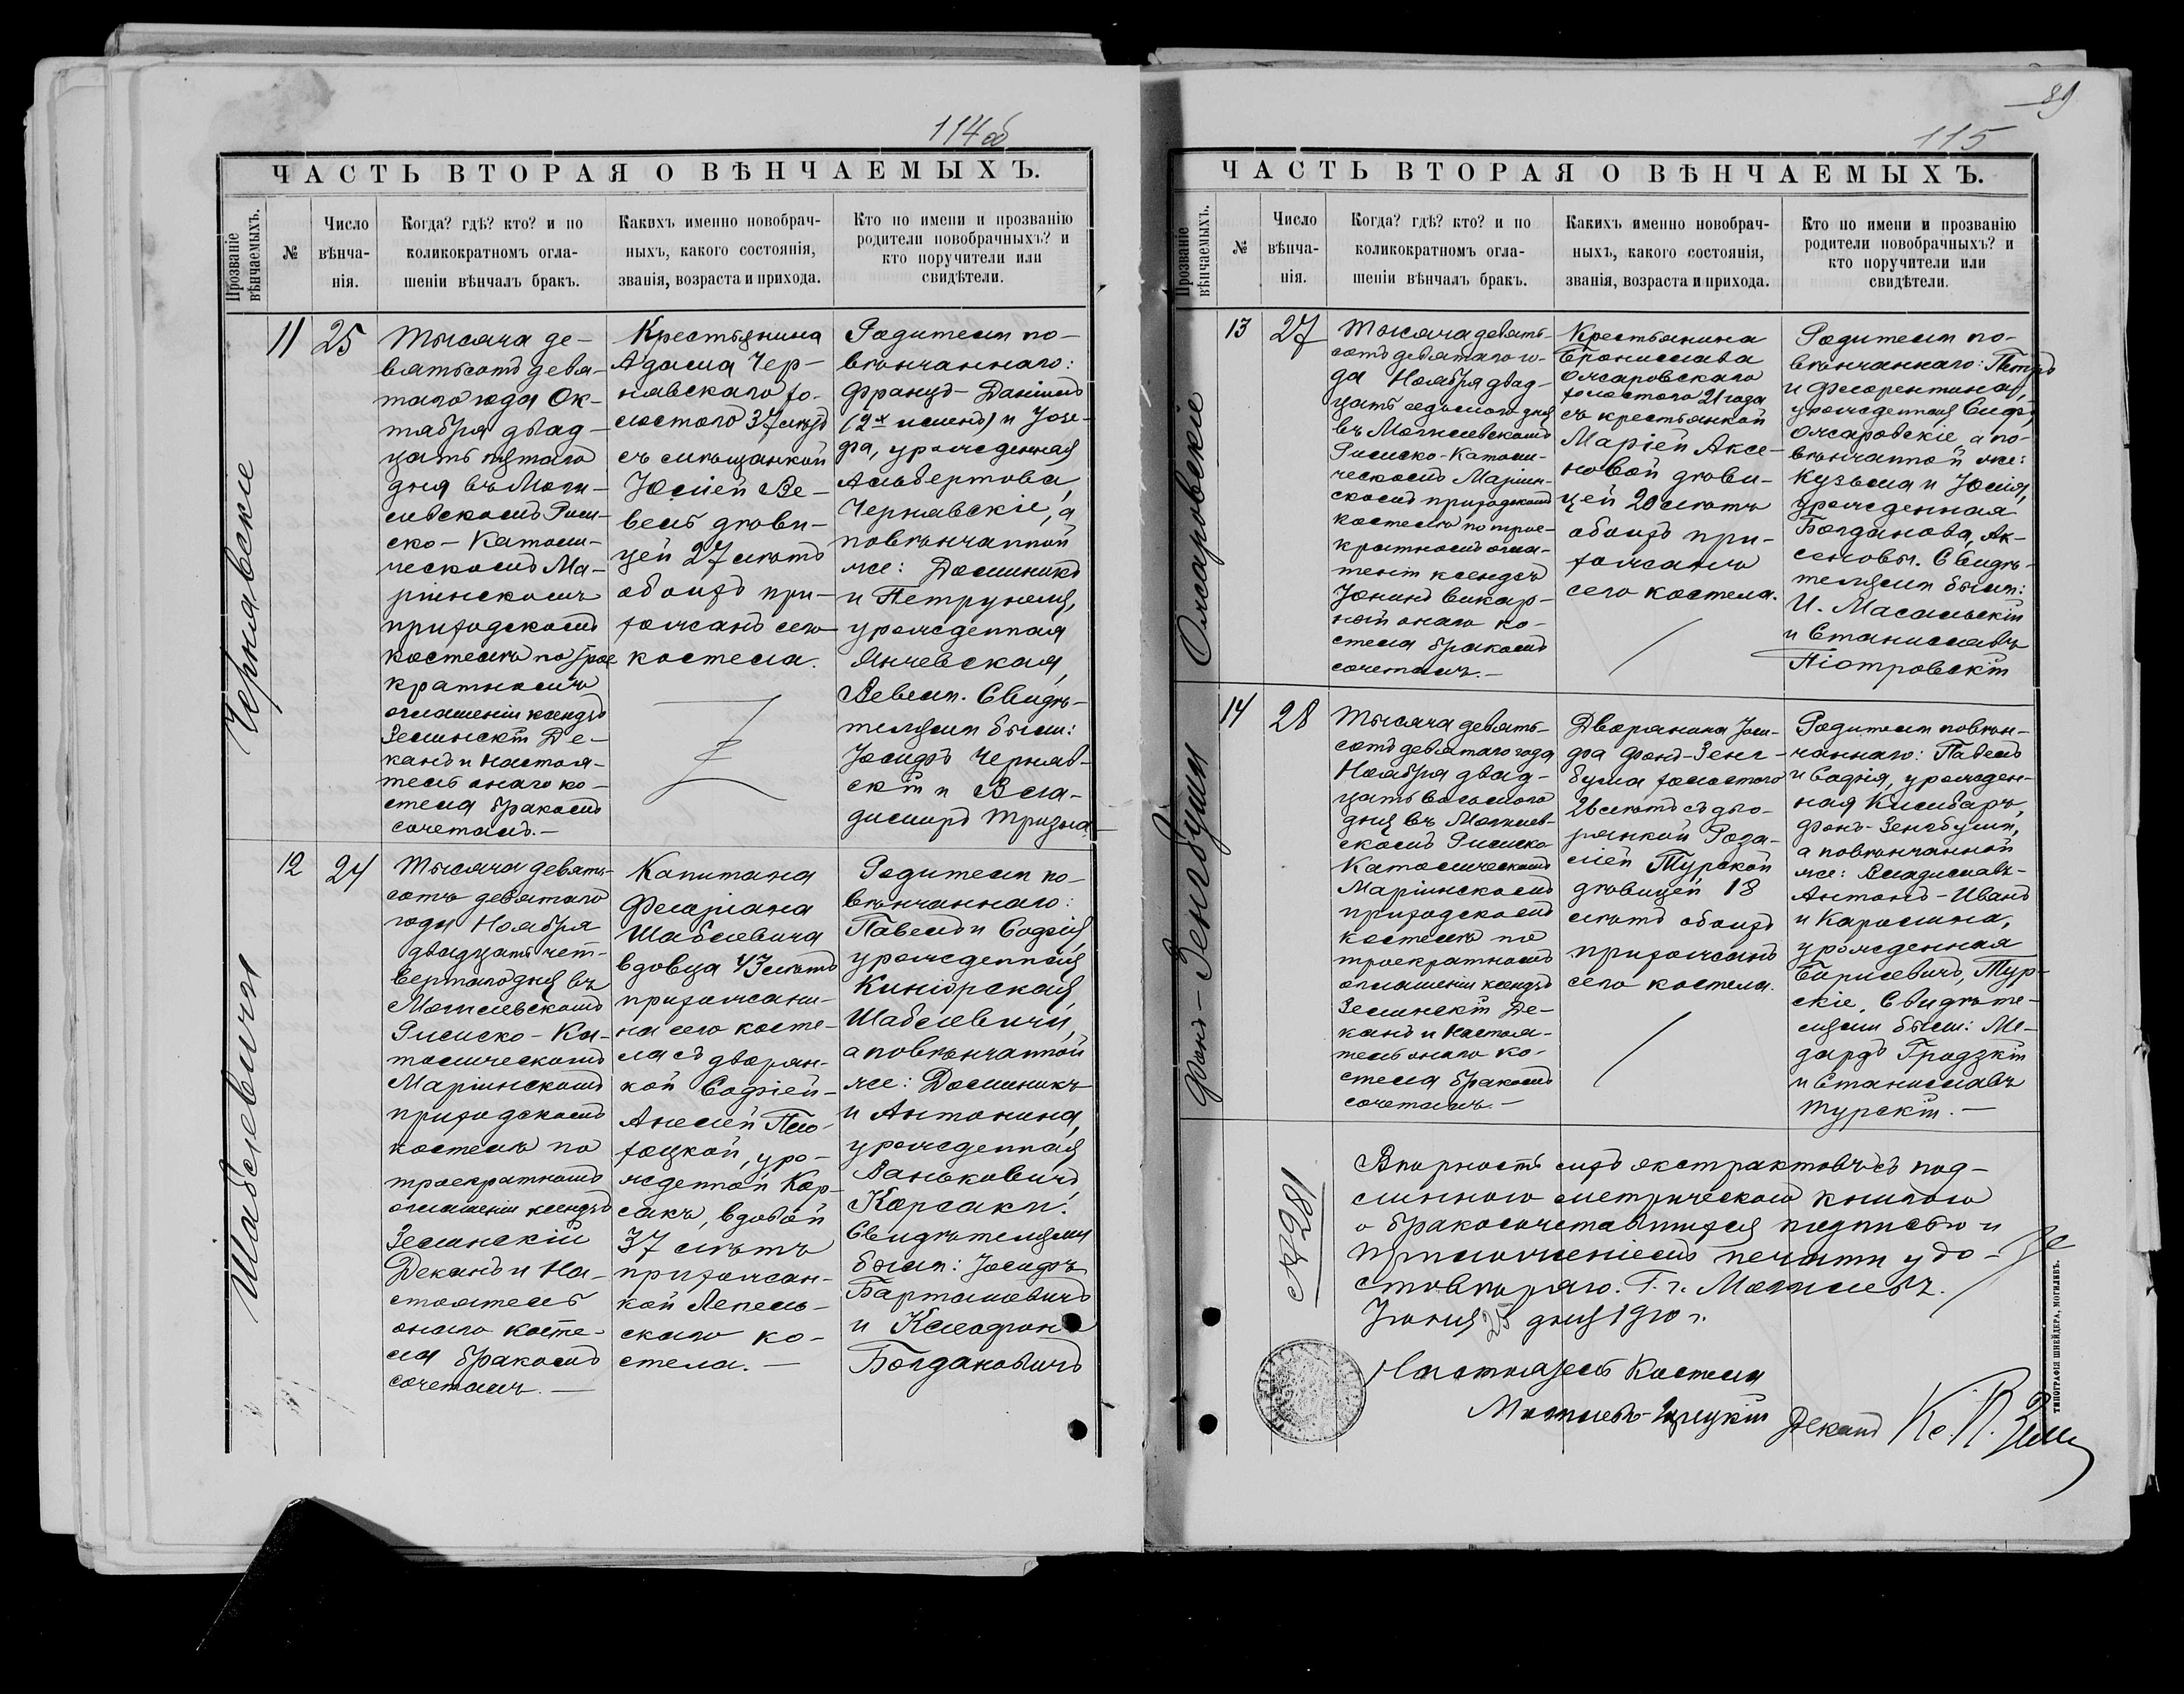 114об
ЧАСТЬ ВТОРАЯ О ВѢНЧАЕМЫХЪ.
Прозваніе вѣнчаемыхъ.
№
Число вѣнча-нія.
Когда? гдѣ? кто? и по
коликократномъ огла-
шеніи вѣнчалъ бракъ.
Какихъ именно новобрач-
ныхъ, какого состоянія,
званія, возраста и прихода.
Кто по имени и прозванію
родители новобрачныхъ? и
кто поручители или
свидѣтели.
Чернявскіе
11
25
Тысяча де-
вятьсотъ девя-
таго года Ок-
тября двад-
цать пятаго
дня въ Моги-
левскомъ Рим-
ско-Католи-
ческомъ Ма-
ріинскомъ
приходскомъ
костелѣ по трое
кратномъ
оглашеніи ксендзъ
Зелинскій Де-
канъ и Настоя-
тель онаго ко-
стела бракомъ
сочеталъ.—
Крестьянина
Адама Чер-
нявскаго хо-
лостого 37 лѣтъ
съ мѣщанкой
Юліей Ве-
вель дѣви-
цей 27 лѣтъ
обоихъ при-
хожанъ сего
костела.
Родители по-
вѣнчаннаго:
Францъ-Даніилъ
(2хъ именъ) и Юзе-
фа, урожденная
Альбертова,
Чернявскіе, а
повѣнчанной
же: Доминикъ
и Петрунеля,
урожденная
Янчевская,
Вевели. Свидѣ-
телями были:
Іосифъ Черняв-
скій и Вла-
димиръ Тризна.
Шабліевичи
12
24
Тысяча девять-
сотъ девятаго
года Ноября
двадцать чет-
вертаго дня въ
Могилевскомъ
Римско-Ка-
толическомъ
Маріинскомъ
приходскомъ
костелѣ по
троекратномъ
оглашеніи ксендзъ
Зелинскій
Деканъ и На-
стоятель
онаго косте-
ла бракомъ
сочеталъ.—
Капитана
Флоріана
Шаблевича
вдовца 43 лѣтъ
прихожани-
на сего косте-
ла съ дворян-
кой Софіей-
Анелей Пло-
хоцкой, уро-
жденной Кор-
сакъ, вдовой
37 лѣтъ
прихожан-
кой Лепель-
скаго ко-
стела.—
Родители по-
вѣнчаннаго:
Павелъ и Софія,
урожденная
Киніорская,
Шаблевичи,
а повѣнчанной
же: Доминикъ
и Антонина,
урожденная
Ваньковичъ
Корсаки.
Свидѣтелями
были: Іосифъ
Бартошевичъ
и Клеофонъ
Богдановичъ
89
115
ЧАСТЬ ВТОРАЯ О ВѢНЧАЕМЫХЪ.
Прозваніе вѣнчаемыхъ.
№
Число вѣнча-нія.
Когда? гдѣ? кто? и по
коликократномъ огла-
шеніи вѣнчалъ бракъ.
Какихъ именно новобрач-
ныхъ, какого состоянія,
званія, возраста и прихода.
Кто по имени и прозванію
родители новобрачныхъ? и
кто поручители или
свидѣтели.
Ожаровскіе
13
27
Тысяча девять-
сотъ девятаго го-
да Ноября двад-
цать седьмого дня
въ Могилевскомъ
Римско-Католи-
ческомъ Маріин-
скомъ приходскомъ
костелѣ по трое-
кратномъ огла-
шеніи ксендзъ
Юнинъ викар-
ной онаго ко-
стела бракомъ
сочеталъ.—
Крестьянина
Бронислава
Ожаровскаго
холостого 21 года
съ крестьянкой
Маріей Аксе-
новой дѣви-
цей 20 лѣтъ
обоихъ при-
хожанъ
сего костела.
Родители по-
вѣнчаннаго: Петръ
и Флорентина,
урожденная Сифръ,
Ожаровскіе, а по-
вѣнчанной же:
Кузьма и Юлія,
урожденная
Богданова, Ак-
сеновы. Свидѣ-
телями были:
И. Масальскій
и Станиславъ
Піотровскій
Фонъ-Зенгбуши
14
28
Тысяча девять-
сотъ девятаго года
Ноября двад-
цать восьмого
дня въ Могилев-
скомъ Римско-
Католическомъ
Маріинскомъ
приходскомъ
костелѣ по
троекратномъ
оглашеніи ксендзъ
Зелинскій Де-
канъ и Настоя-
тель онаго ко-
стела бракомъ
сочеталъ.—
Дворянина Іоси-
фа Фонъ-Зенг-
буша холостого
26 лѣтъ съ дво-
рянкой Роза-
ліей Турской
дѣвицей 18
лѣтъ обоихъ
прихожанъ
сего костела.
Родители повѣн-
чаннаго: Павелъ
и Софія, урожден-
ная Кимбаръ,
Фонъ-Зенгбуши,
а повѣнчанной
же: Владиславъ-
Антонъ-Иванъ
и Каролина,
урожденная
Борисевичъ, Тур-
скіе. Свидѣте-
лями были: Ме-
дардъ Гродзкій
и Станиславъ
Турскій.—
№ 281
Вѣрность сихъ экстрактовъ съ под-
линного метрическою книгою
о бракосочетавшихся подписью и
приложеніемъ печати удо-
стовѣряю. Г. г. Могилевъ.
Іюня 25 дня 1910 г.
Настоятель Костела
Могилево- Деканъ Кс. П. Зели
ТИПОГРАФІЯ ШНЕЙДЕРА, МОГИЛЕВЪ.